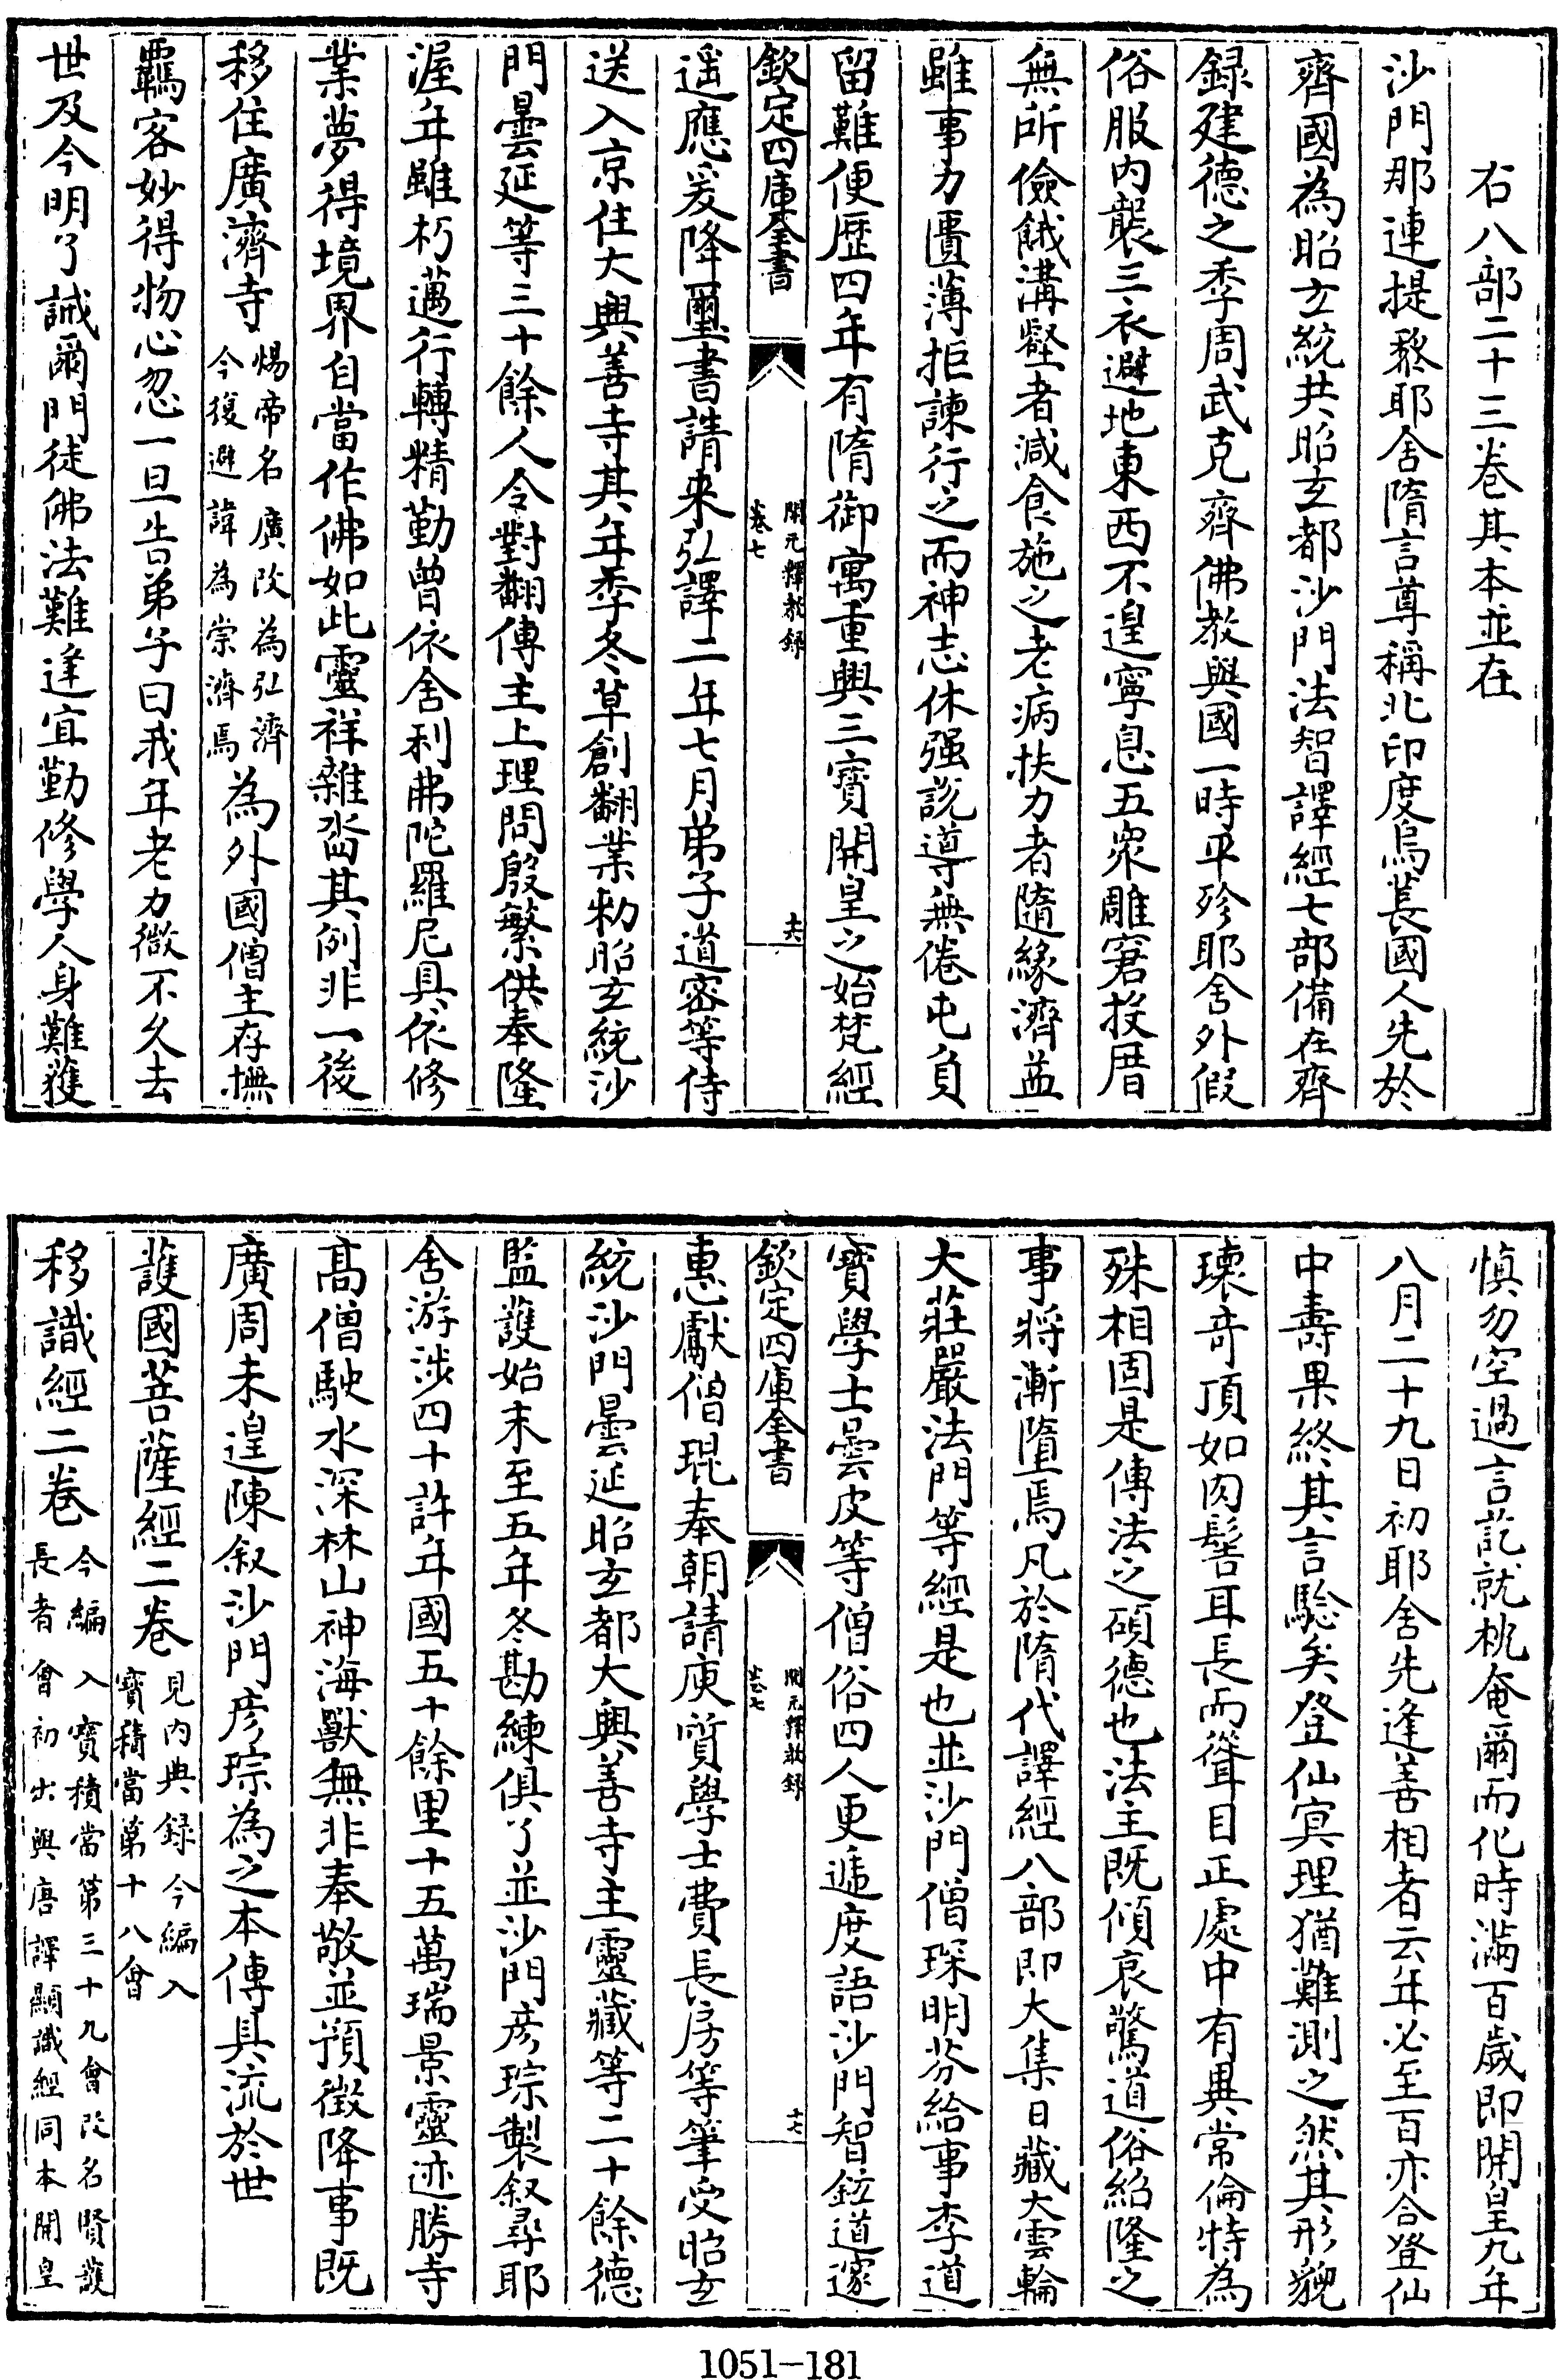 右八部二十三卷其本並在
沙門那連提黎耶舍隋言尊稱北印度烏萇國人先於
齊國為昭玄統共昭玄都沙門法智譯經七部備在齊
録建德之季周武克齊佛教與國一時平殄耶舍外假
俗服内襲三衣避地東西不遑寧息五衆雕窘投厝
無所儉餓溝壑者減食施之老病扶力者隨緣濟益
雖事力匱薄拒諫行之而神志休强説導無倦屯負
留難便歴四年有隋御寓重興三寳開皇之始梵經
欽定四庫全書
開元釋教録
卷七
十六
遥應爰降璽書請來弘譯二年七月弟子道密等侍
送入京住大興善寺其年季冬草創翻業勅昭玄統沙
門曇延等三十餘人令對翻傳主上理問殷繁供奉隆
渥年雖朽邁行轉精勤曾依舍利弗陀羅尼具依修
業夢得境界自當作佛如此靈祥雜沓其例非一後
移住廣濟寺煬帝名廣改為弘濟今復避諱為崇濟焉為外國僧主存撫
羈客妙得物心忽一旦告弟子曰我年老力微不久去
世及今明了誡爾門徒佛法難逢宜勤修學人身難獲
慎勿空過言訖就枕奄爾而化時滿百歲即開皇九年
八月二十九日初耶舍先逢善相者云年必至百亦合登仙
中壽果終其言驗矣登仙冥理猶難測之然其形貌
瓌奇頂如肉髻耳長而聳目正處中有異常倫特為
殊相固是傳法之碩德也法主既傾哀驚道俗紹隆之
事將漸墮焉凡於隋代譯經八部即大集日藏大雲輪
大莊嚴法門等經是也並沙門僧琛明芬給事李道
寳學士曇皮等僧俗四人更遞度語沙門智鉉道邃
欽定四庫全書
開元釋教録
卷七
十七
惠獻僧琨奉朝請庾質學士費長房等筆受昭玄
統沙門曇延昭玄都大興善寺主靈藏等二十餘德
監護始末至五年冬勘練俱了並沙門彦琮製叙尋耶
舍游涉四十許年國五十餘里十五萬瑞景靈迹勝寺
高僧駛水深林山神海獸無非奉敬並預徴降事既
廣周未遑陳叙沙門彦琮為之本傳具流於世
護國菩薩經二卷見内典録今編入寳積當第十八會
移識經二卷今編入寳積當第三十九會改名賢護長者會初出與唐譯顯識經同本開皇
1051-181